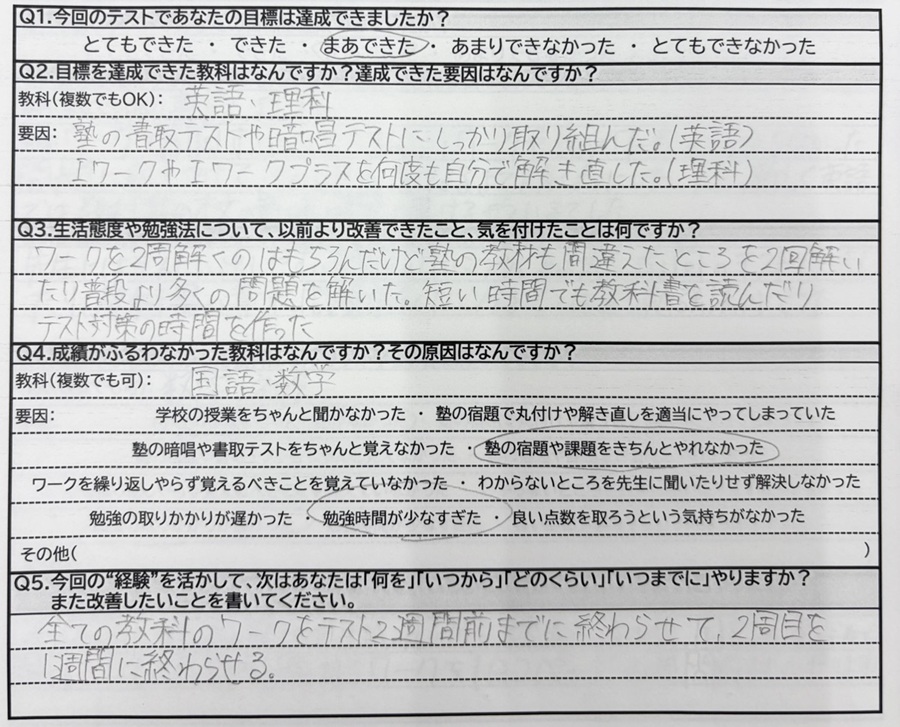 Q1.今回のテストであなたの目標は達成できましたか？
とてもできた ・ できた ・ まあできた ・ あまりできなかった ・ とてもできなかった
Q2.目標を達成できた教科はなんですか？達成できた要因はなんですか？
教科(複数でもOK)： 英語、理科
要因： 塾の書取テストや暗唱テストにしっかり取り組んだ。(英語)
Iワークやエワークプラスを何度も自分で解き直した。(理科)
Q3.生活態度や勉強法について、以前より改善できたこと、気を付けたことは何ですか？
ワークを2周解くのはもちろんだけど塾の教材も間違えたところを2回解い
たり普段より多くの問題を解いた。短い時間でも教科書を読んだり
テスト対策の時間を作った
Q4.成績がふるわなかった教科はなんですか？その原因はなんですか？
教科(複数でも可)： 国語、数学
要因： 学校の授業をちゃんと聞かなかった ・ 塾の宿題で丸付けや解き直しを適当にやってしまっていた
塾の暗唱や書取テストをちゃんと覚えなかった ・ 塾の宿題や課題をきちんとやれなかった
ワークを繰り返しやらず覚えるべきことを覚えていなかった ・ わからないところを先生に聞いたりせず解決しなかった
勉強の取りかかりが遅かった ・ 勉強時間が少なすぎた ・ 良い点数を取ろうという気持ちがなかった
その他( )
Q5.今回の“経験”を活かして、次はあなたは｢何を｣｢いつから｣｢どのくらい｣｢いつまでに｣やりますか？
また改善したいことを書いてください。
全ての教科のワークをテスト2週間前までに終わらせて、2周目を
1週間に終わらせる。